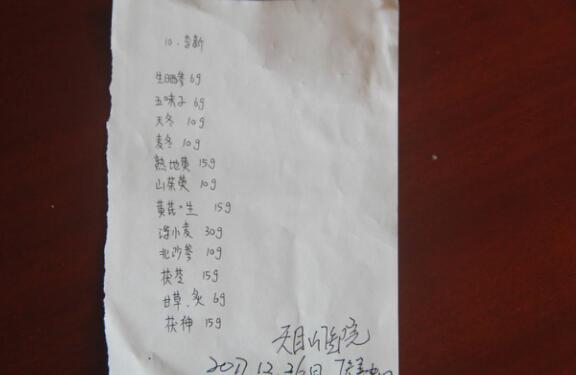 10. 李新
生晒参 6g
五味子 6g
天冬 10g
麦冬 10g
熟地黄 15g
山茱萸 10g
黄芪·生 15g
浮小麦 30g
北沙参 10g
茯苓 15g
甘草、炙 6g
茯神 15g
天目山医院
2017.12.26日